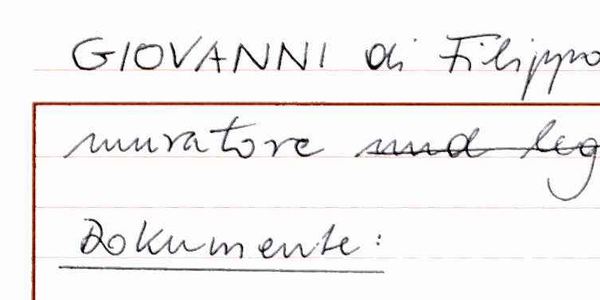 GIOVANNI di Filippo
muratore und leg
Dokumente: